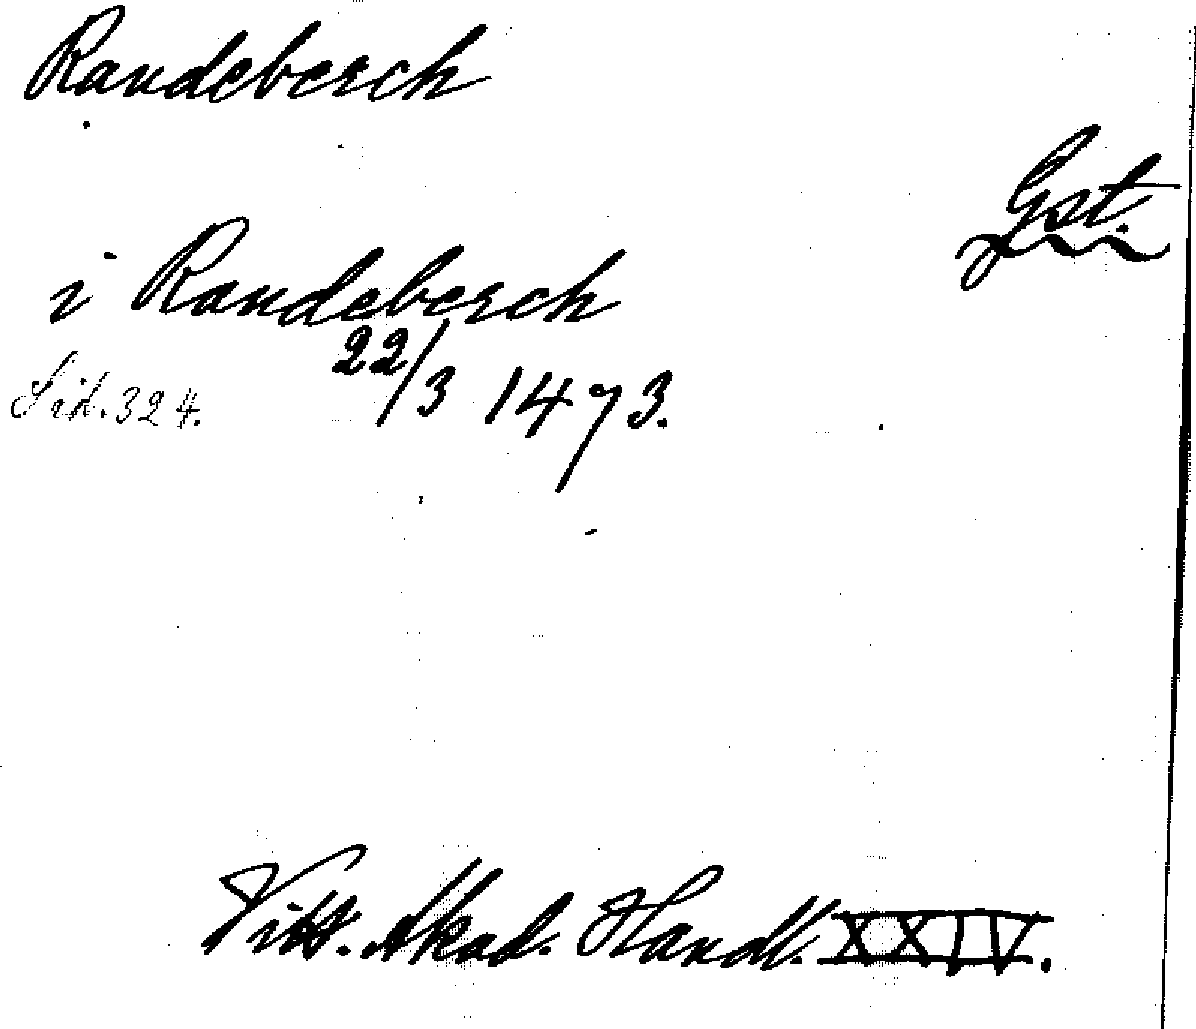 Randeberch
Gst.
i Randeberch
22/3 1473.
Sid. 324.
Vitt. Akad. Handl. XXIV.